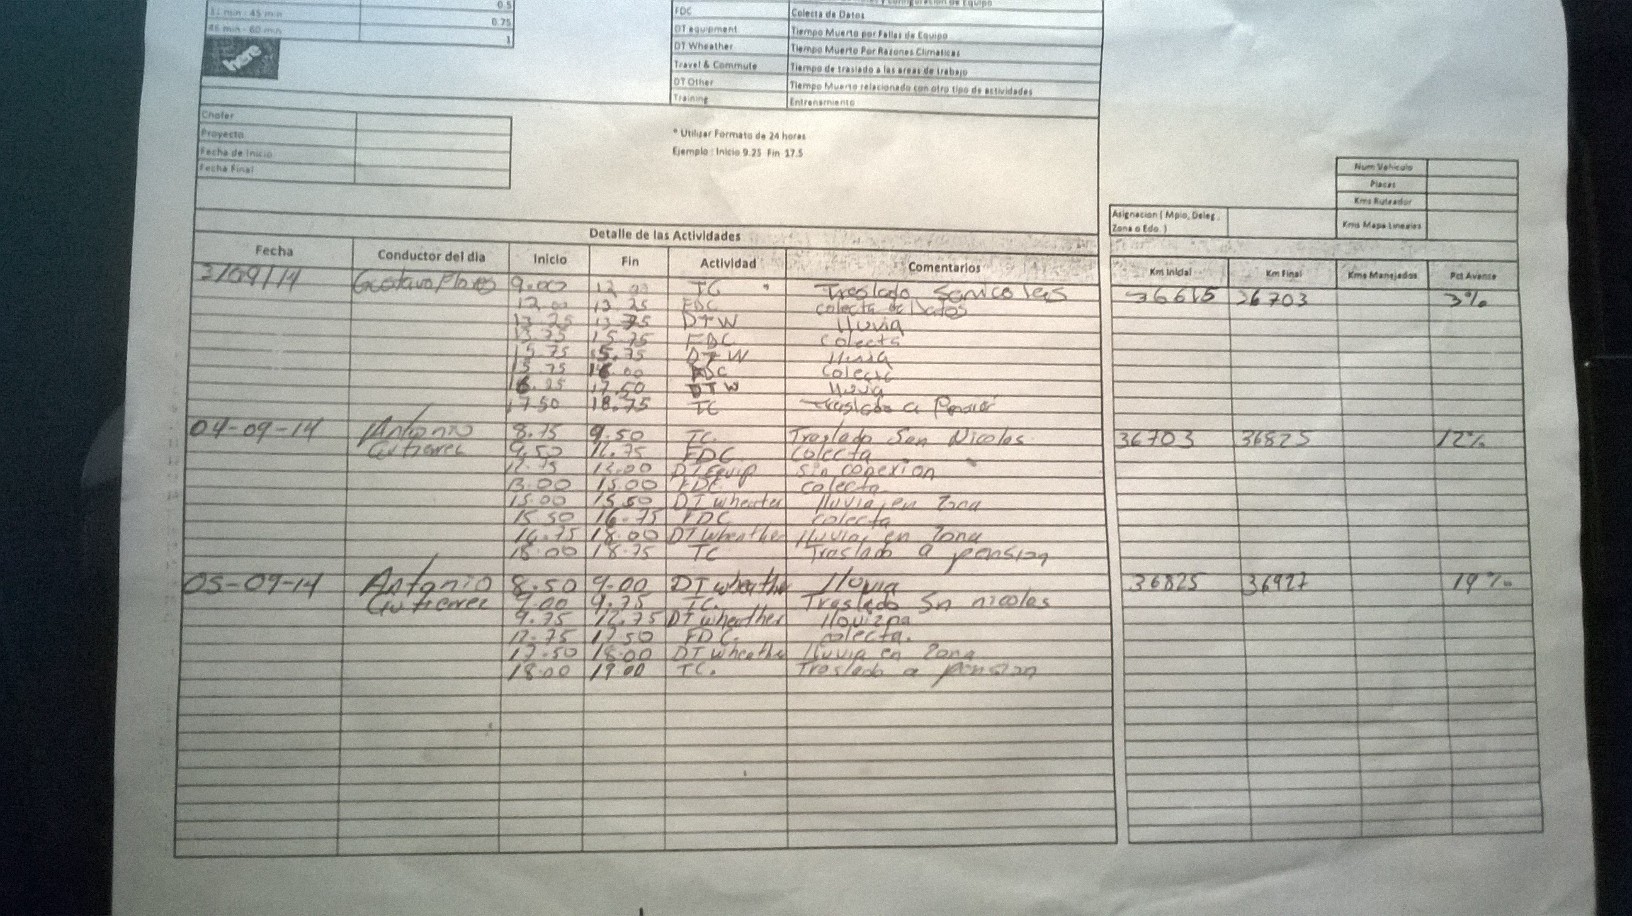 0.5
31 min - 45 min 0.75
46 min - 60 min 1
here
FDC Colecta de Datos
DT equipment Tiempo Muerto por Fallas de Equipo
DT Wheather Tiempo Muerto Por Razones Climaticas
Travel & Commute Tiempo de traslado a las areas de trabajo
DT Other Tiempo Muerto relacionado con otro tipo de actividades
Training Entrenamiento
Chofer
Proyecto
Fecha de Inicio
Fecha Final
* Utilizar Formato de 24 horas
Ejemplo : Inicio 9.25 Fin 17.5
Num Vehiculo
Placas
Kms Ruteador
Kms Mapa Lineales
Asignacion ( Mpio, Deleg,
Zona o Edo. )
Detalle de las Actividades
Fecha Conductor del dia Inicio Fin Actividad Comentarios Km Inicial Km Final Kms Manejados Pct Avance
3/09/14 Gustavo Flores 9.00 12.00 TC Traslado 36615 36703 3%
12.00 13.25 FDC colecta de Datos
13.25 13.75 DTW lluvia
13.75 15.75 FDC colecta
15.75 DTW lluvia
FDC colecta
16.25 17.50 DTW lluvia
17.50 18.75 TC traslado a
04-09-14 Antonio 8.75 9.50 TC. Traslado San Nicolas 36703 36825 12%
Gutierrez 9.50 12.75 FDC colecta
12.75 13.00 DT Equip sin conexion
13.00 15.00 FDC colecta
15.00 15.50 DT wheater lluvia en Zona
15.50 16.75 FDC colecta
16.75 18.00 DT wheather lluvia en Zona
18.00 18.75 TC Traslado a pension
05-09-14 Antonio 8.50 9.00 DT wheather lluvia 36825 36927 19%
Gutierrez 9.00 9.75 TC. Traslado Sn nicolas
9.75 12.75 DT wheather
12.75 17.50 FDC. colecta.
17.50 18.00 DT wheathe lluvia en Zona
18.00 19.00 TC. Traslado a pension